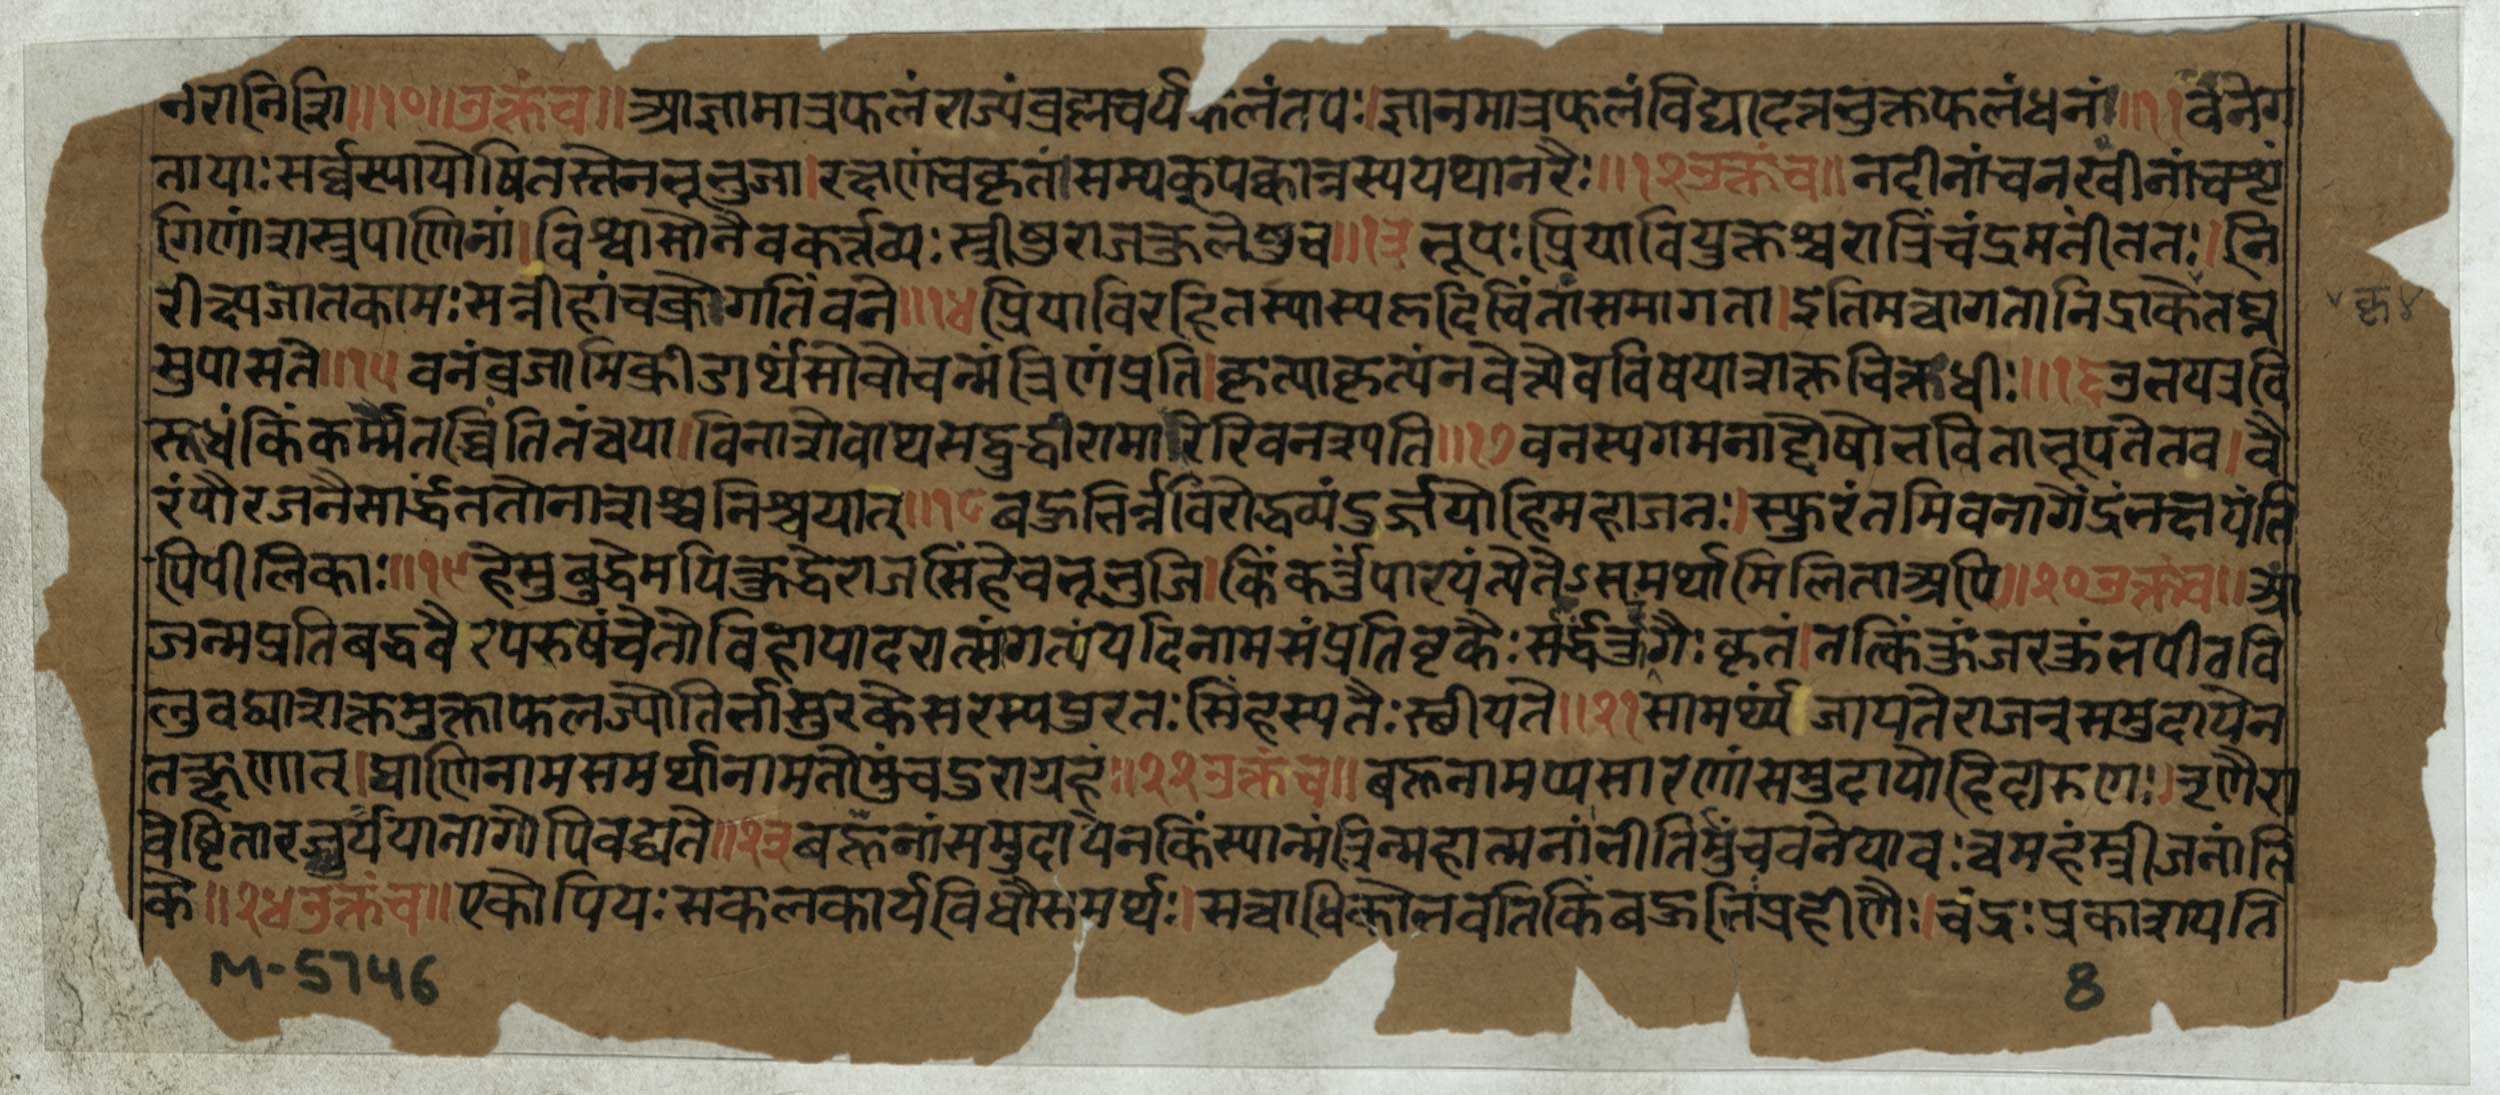 नरानिशि॥१०॥उक्तंच॥आज्ञामात्रफलंराज्यंब्रह्मचर्यफलंतपः।ज्ञानमात्रफलंविद्यादत्तभुक्तफलंधनं॥११
तायाःसर्वस्यायोषितस्तेनभूभुजा।रक्षणंचकृतंसम्यक्पक्वान्नस्ययथानरैः॥१२उक्तंच॥नदीनांचनखीनांचशृं
गिणांशस्त्रपाणिनां।विश्वासोनैवकर्त्तव्यःस्त्रीषुराजकुलेषुच॥१३भूपःप्रियावियुक्तश्चरात्रिंचंद्रमतीततः।नि
रीक्ष्यजातकामःसन्नीहांचक्रेगतिंवने॥१४प्रियाविरहितस्यास्यहृदिचिंतासमागता।इतिमत्वागतानिद्राकेतघ्न
मुपासते॥१५वनंव्रजामिक्रीडार्थंसोवोचन्मंत्रिणंप्रति।कृत्याकृत्यंनवेत्त्येवविषयाशक्तचित्तधीः॥१६
विनाशेवाथसद्बुद्धी ॥१७वनस्यगमनाद्दोषोभविताभूपतेतव।वै
रंपौरजनैसार्द्धंततोनाशश्चनिश्चयात्॥१८बहुभिर्न्नविरोद्धव्यंदुर्ज्जयोहिमहाजनः।स्फुरंतमिवनागेंद्रंभक्षयंति
पिपीलिकाः॥१९हेसुबुद्धेमयिक्रुद्धेराजसिंहेचभूभुजि।किंकर्त्तुंपारयंत्येतेऽसमर्थामिलिताअपि॥२०उक्तंच॥आ
जन्मप्रतिबद्धवैरपरुषंचेतोविहायादरात्सांगत्यंयदिनामसंप्रतिवृकैःसार्द्धंकुरंगैःकृतं।तत्किंकुंजरकुंभपीठवि
लुठद्व्याशक्तमुक्ताफलज्योतिर्भासुरकेसरस्यपुरतःसिंहस्यतैःस्थीयते॥२१सामर्थ्यंजायतेराजन्समुदायेन
तत्क्षणात्।प्राणिनामसमर्थानामतोमुंचदुराग्रहं॥२२उक्तंच॥बहूनामप्यसाराणांसमुदायोहिदारुणः।तृणैरा
वेष्टितारज्जुर्ययानागोपिबद्ध्यते॥२३बहूनांसमुदायेनकिंस्यान्मंत्रिन्महात्मनां।भीतिंमुंचवनेयावःत्वमहंस्त्रीजनांति
के॥२४उक्तंच॥एकोपियःसकलकार्यविधौसमर्थः।सत्वाधिकोभवतिकिंबहुभिःप्रहीणैः।चंद्रःप्रकाशयति
M-5746
8